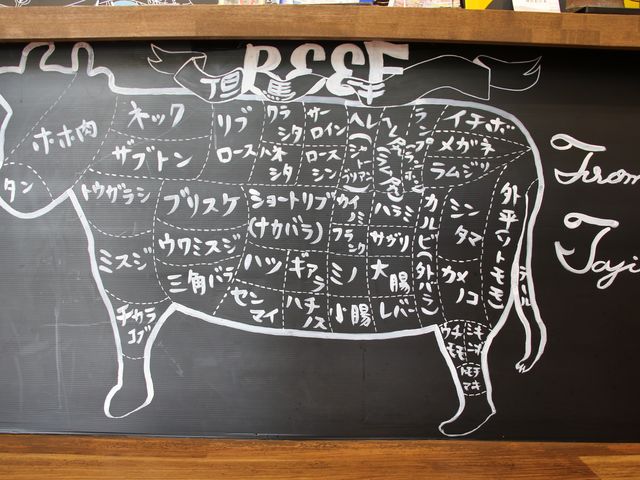 BEEF
但馬牛
ホホ肉
タン
ネック
ザブトン
トウガラシ
ミスジ
チカラ
コブ
ブリスケ
ウワミスジ
三角バラ
リブ
ロース
クラ
シタ
ハネ
シタ
サー
ロイン
ロース
シン
ショートリブ
(ナカバラ)
ハツ
センマイ
ギアラ
ハチノス
ヘレ
(シャトーブリアン)
カイノミ
フランク
ミノ
小腸
ハラミ
サガリ
大腸
レバー
ラン
カルビ(外バラ)
イチボ
メガネ
ラムジリ
シンタマ
カメノコ
外平(ソトモモ)
テール
ウチ
モモ
トモ
マキ
From
Taji